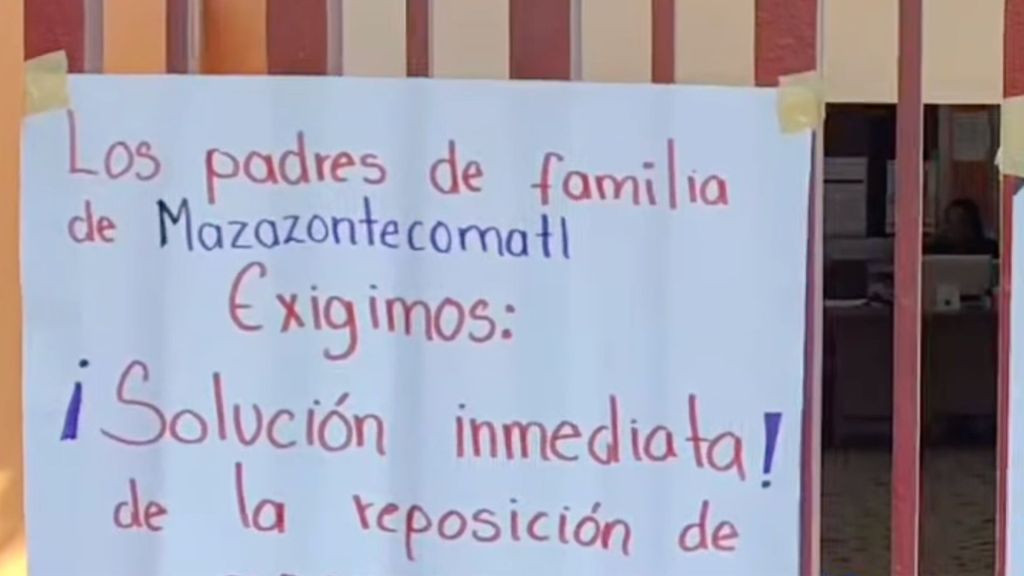 Los padres de familia
de Mazazontecomatl
Exigimos:
¡Solución inmediata!
de la reposición de